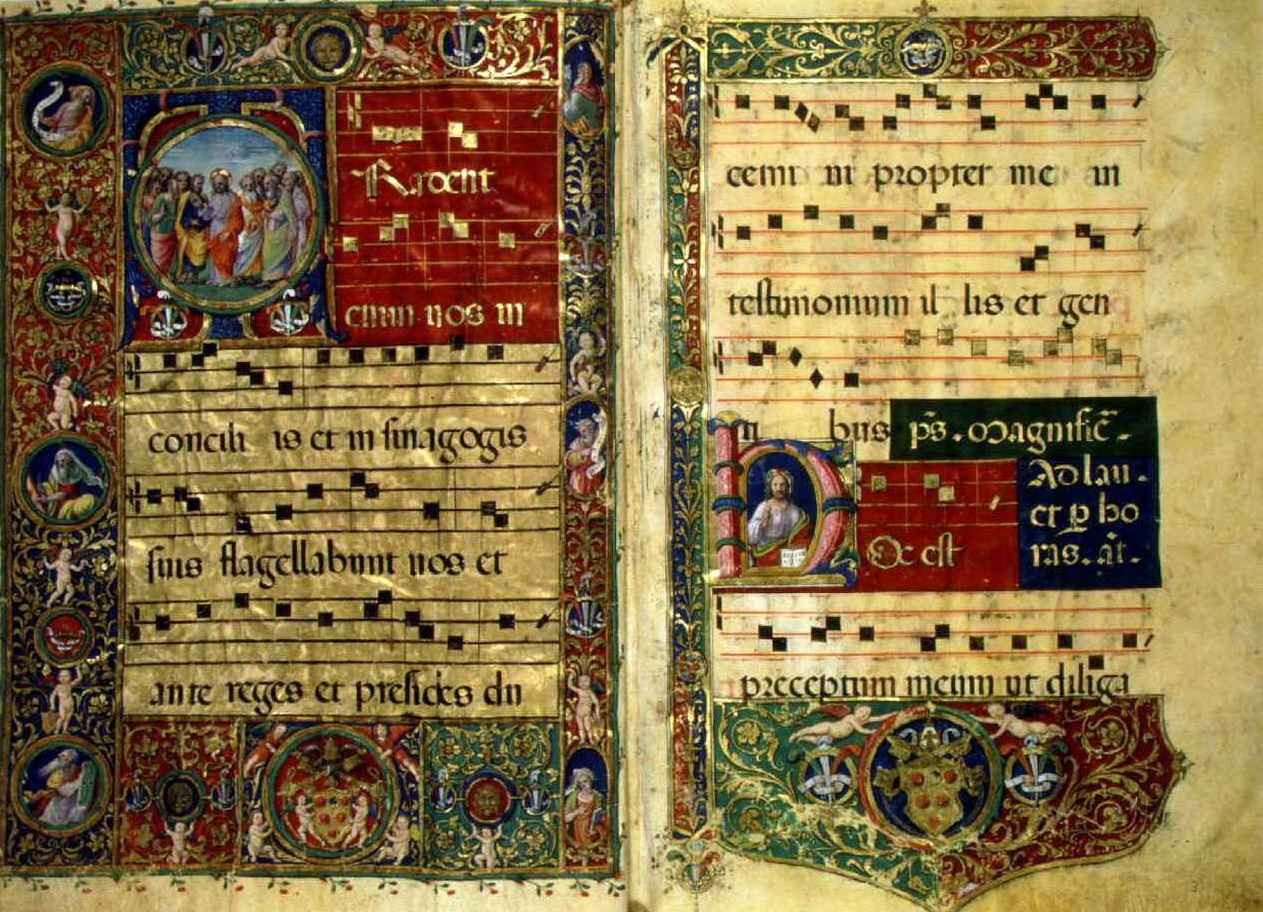 TRadent
enim uos in
concilii is et in sinagogis
suis flagellabunt uos et
ante reges et presides du
cemi ni propter me in
testimonium il lis et gen
ti bus p̃s. Magnific̃.
Ad lau.
et ꝑ ho
ras. añ.
HOc est
preceptum meum ut diliga